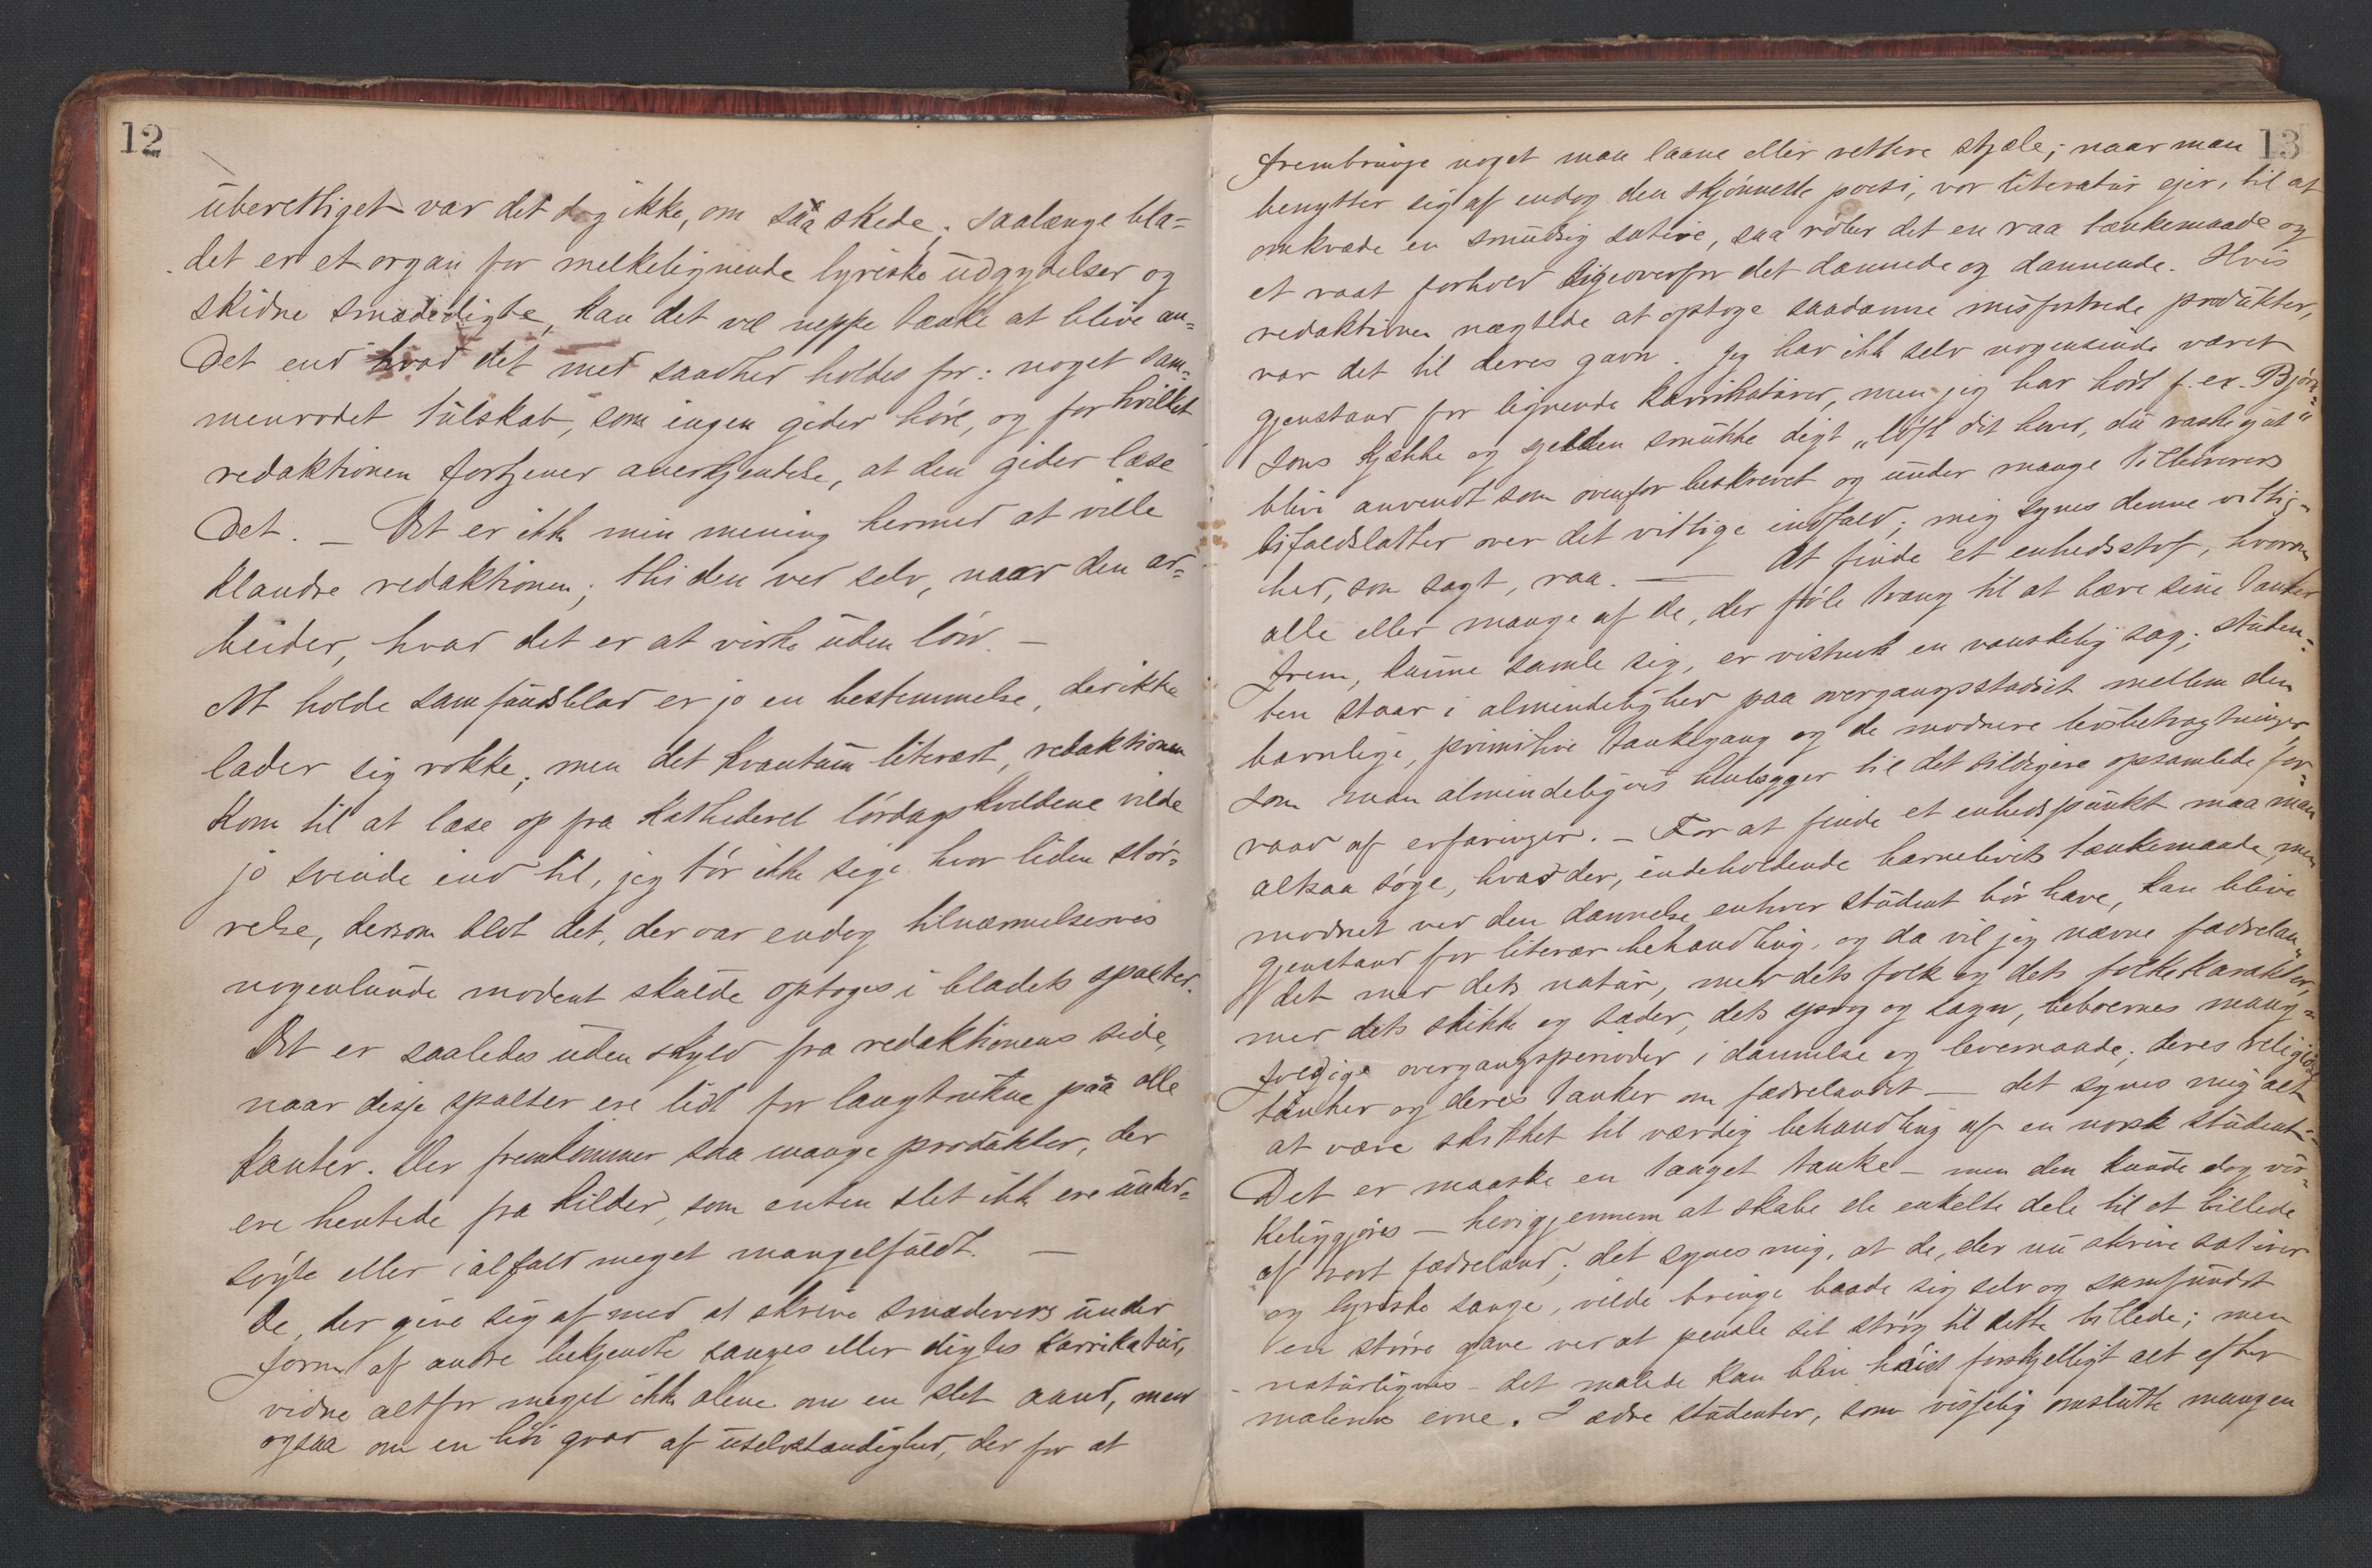 12
uberettiget var det dog ikke, om saa skede; saalænge bla=
det er et organ for melkelignende lyriske udgydelser og
skidne smædedigte, kan det vel neppe tænke at blive an=
det end hvad det med sandhed holdes for: noget sam=
menrodet tulskab, som ingen gider høre, og for hvilket
redaktionen fortjener anerkjendelse, at den gider læse
det. — Det er ikke min mening hermed at ville
klandre redaktionen; thi den ved selv, naar den ar=
beider, hvad det er at virke uden løn. —
At holde samfundsblad er jo en bestemmelse, der ikke
lader sig rokke; men det kvantum literært, redaktionen
kom til at læse op fra kathederet lørdagskveldene vilde
jo svinde ind til, jeg tør ikke sige hvor liden stør=
relse, dersom blot det, der var endog tilnærmelsesvis
nogenlunde modent skulde optages i bladets spalter.
Det er saaledes uden skyld fra redaktionens side,
naar disse spalter ere lidt for langtrukne paa alle
kanter. Der fremkommer saa mange produkter, der
ere hentede fra kilder, som enten slet ikke ere under=
søgte eller ialfald meget mangelfuldt. —
De, der give sig af med at skrive smædevers under
form af andre bekjendte sanges eller digtes karrikatur,
vidne altfor meget ikke alene om en slet aand, men
ogsaa om en høi grad af uselvstændighed, der for at
13
frembringe noget maa laane eller rettere stjæle; naar man
benytter sig af endog den skjønneste poesi, vor literatur ejer, til at
omkvæde en smudsig satire, saa røber det en raa tænkemaade og
et raat forhold ligeoverfor det dannede og dannende. Hvis
redaktionen nægtede at optage saadanne misfostrede produkter,
var det til deres gavn. Jeg har ikke selv nogensinde været
gjenstand for lignende karrikaturer, men jeg har hørt f. ex. Bjørn=
sons kjække og sjelden smukke digt „løft dit hoved, du raske gut"
blive anvendt som ovenfor beskrevet og under mange tilhøreres
bifaldslatter over det vittige indfald; mig synes denne vittig=
hed, som sagt, raa. — At finde et enhedsstof, hvorom
alle eller mange af de, der føle trang til at bære sine tanker
frem, kunne samle sig, er vistnok en vanskelig sag; studen=
ten staar i almindelighed paa overgangsstadiet mellem den
barnlige, primitive tankegang og de modnere livsbetragtninger,
som man almindeligvis henlægger til det sildigere opsamlede for=
raad af erfaringer. — For at finde et enhedspunkt maa man
altsaa søge, hvad der, indeholdende barnelivets tænkemaade, men
modnet ved den dannelse enhver student bør have, kan blive
gjenstand for literær behandling, og da vil jeg nævne fædrelan=
det med dets natur, med dets folk og dets folkekarakter,
med dets skikke og sæder, dets sprog og sagn, beboernes mang=
foldige overgangsperioder i dannelse og levemaade; deres religiøse
tanker og deres tanker om fædrelandet — det synes mig alt
at være skikket til værdig behandling af en norsk student. —
Det er maaske en taaget tanke — men den kunde dog vir=
keliggjøres — herigjennem at skabe de enkelte dele til et billede
af vort fædreland; det synes mig, at de, der nu skrive satirer
og lyriske sange, vilde bringe baade sig selv og samfundet
en større gave ved at pensle sit strøg til dette billede; men
— naturligvis — det malede kan blive høist forskjelligt alt efter
malerens evne. I ædre studenter, som visselig omslutte mangen